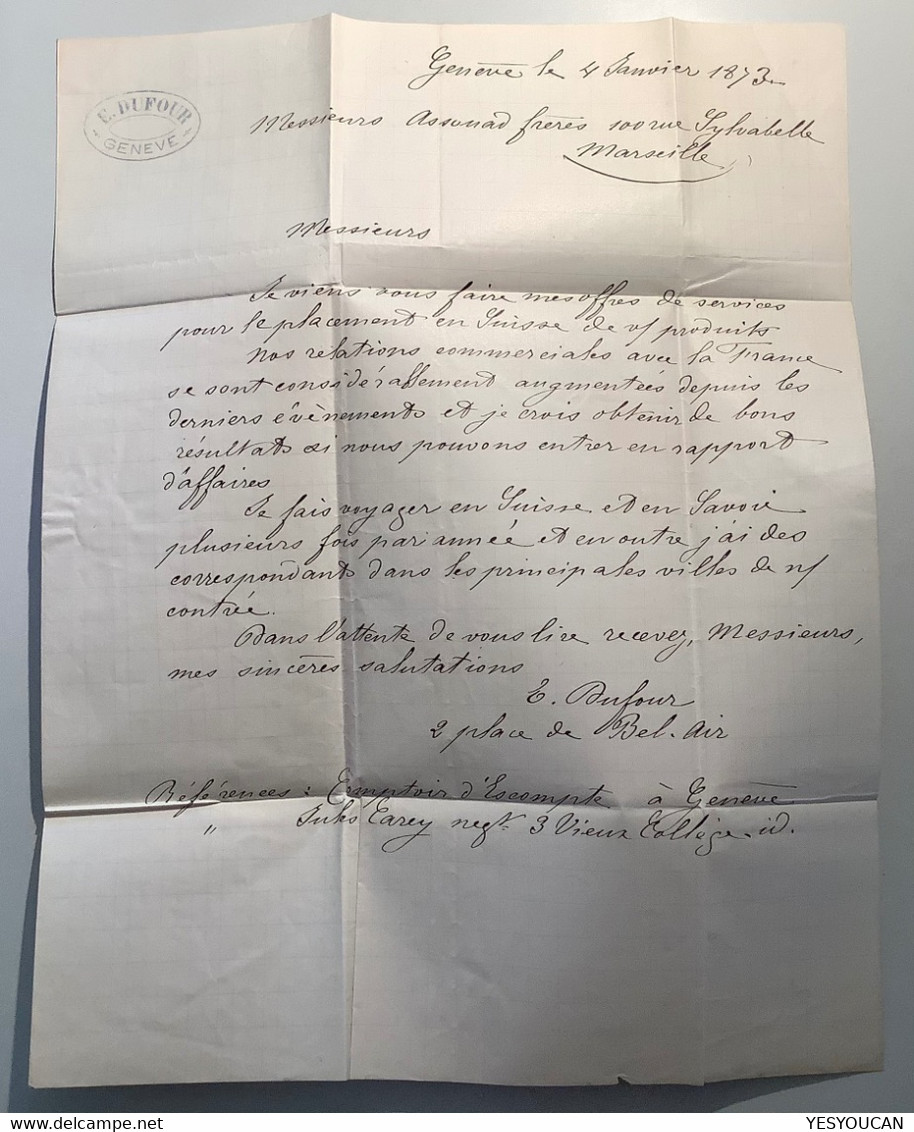 E. DUFOUR
GENEVE
Genève le 4 Janvier 1873
Messieurs Assouad frères 100 rue Sylvabelle
Marseille
Messieurs
Je viens vous faire mes offres de services
pour le placement en Suisse de v/ produits
Nos relations commerciales avec la France
se sont considérablement augmentées depuis les
derniers évènements et je crois obtenir de bons
résultats si nous pouvons entrer en rapport
d'affaires
Je fais voyager en Suisse et en Savoie
plusieurs fois par année et en outre j'ai des
correspondants dans les principales villes de n/
contrée.
Dans l'attente de vous lire recevez, Messieurs,
mes sincères salutations
E. Dufour
2 place de Bel-Air
Références : Comptoir d'Escompte à Genève
" Jules Carey negt. 3 Vieux Collège id.
YESYOUCAN